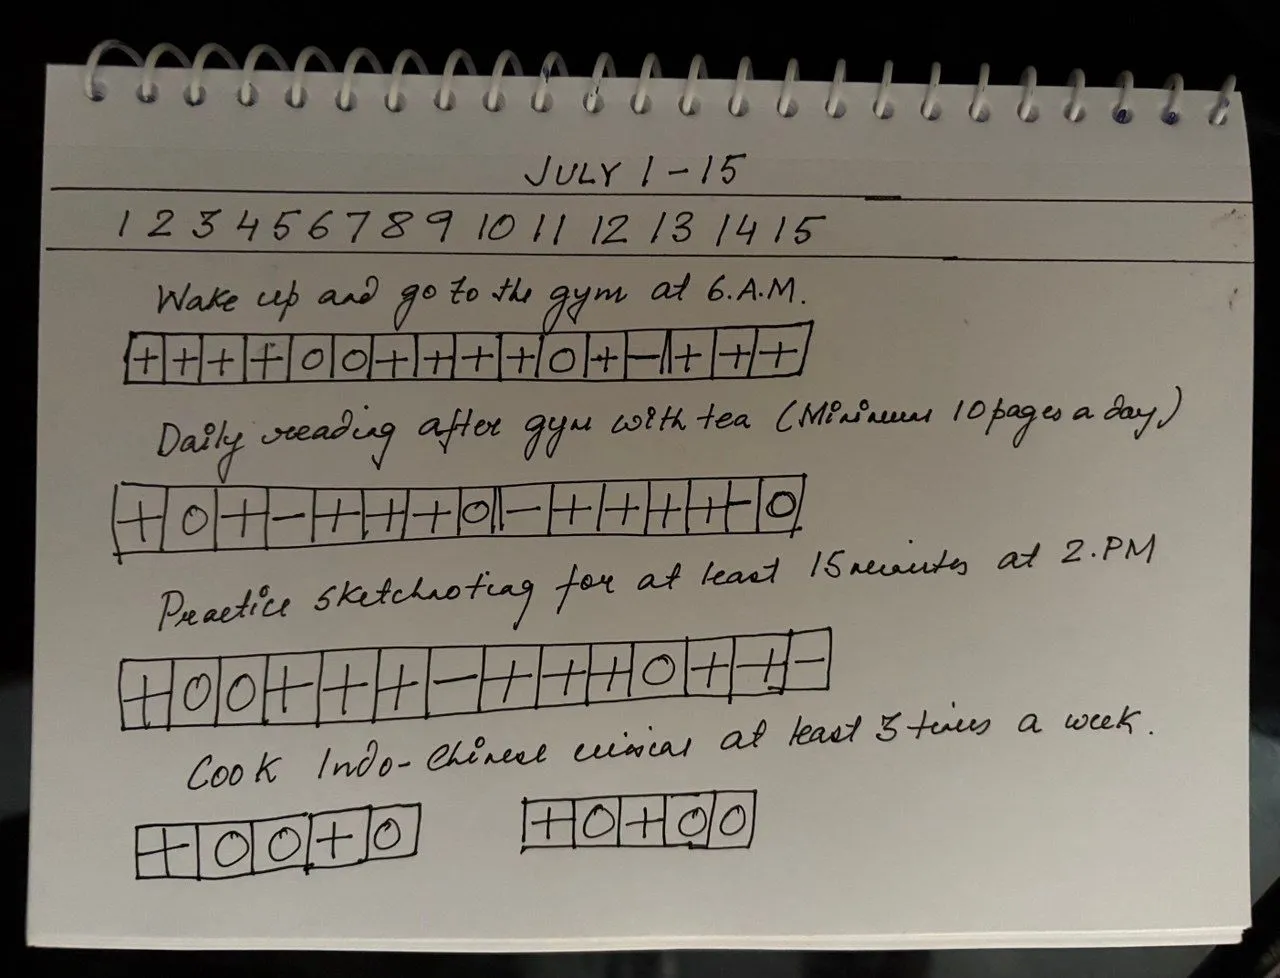 JULY 1 - 15
1 2 3 4 5 6 7 8 9 10 11 12 13 14 15
Wake up and go to the gym at 6.A.M.
+ + + + 0 0 + + + + 0 + - + + +
Daily reading after gym with tea (Minimum 10 pages a day)
+ 0 + - + + + 0 - + + + + - 0
Practice sketchnoting for at least 15 minutes at 2.PM
+ 0 0 + + + - + + + 0 + + -
Cook Indo-Chinese at least 3 times a week.
+ 0 0 + 0 + 0 + 0 0